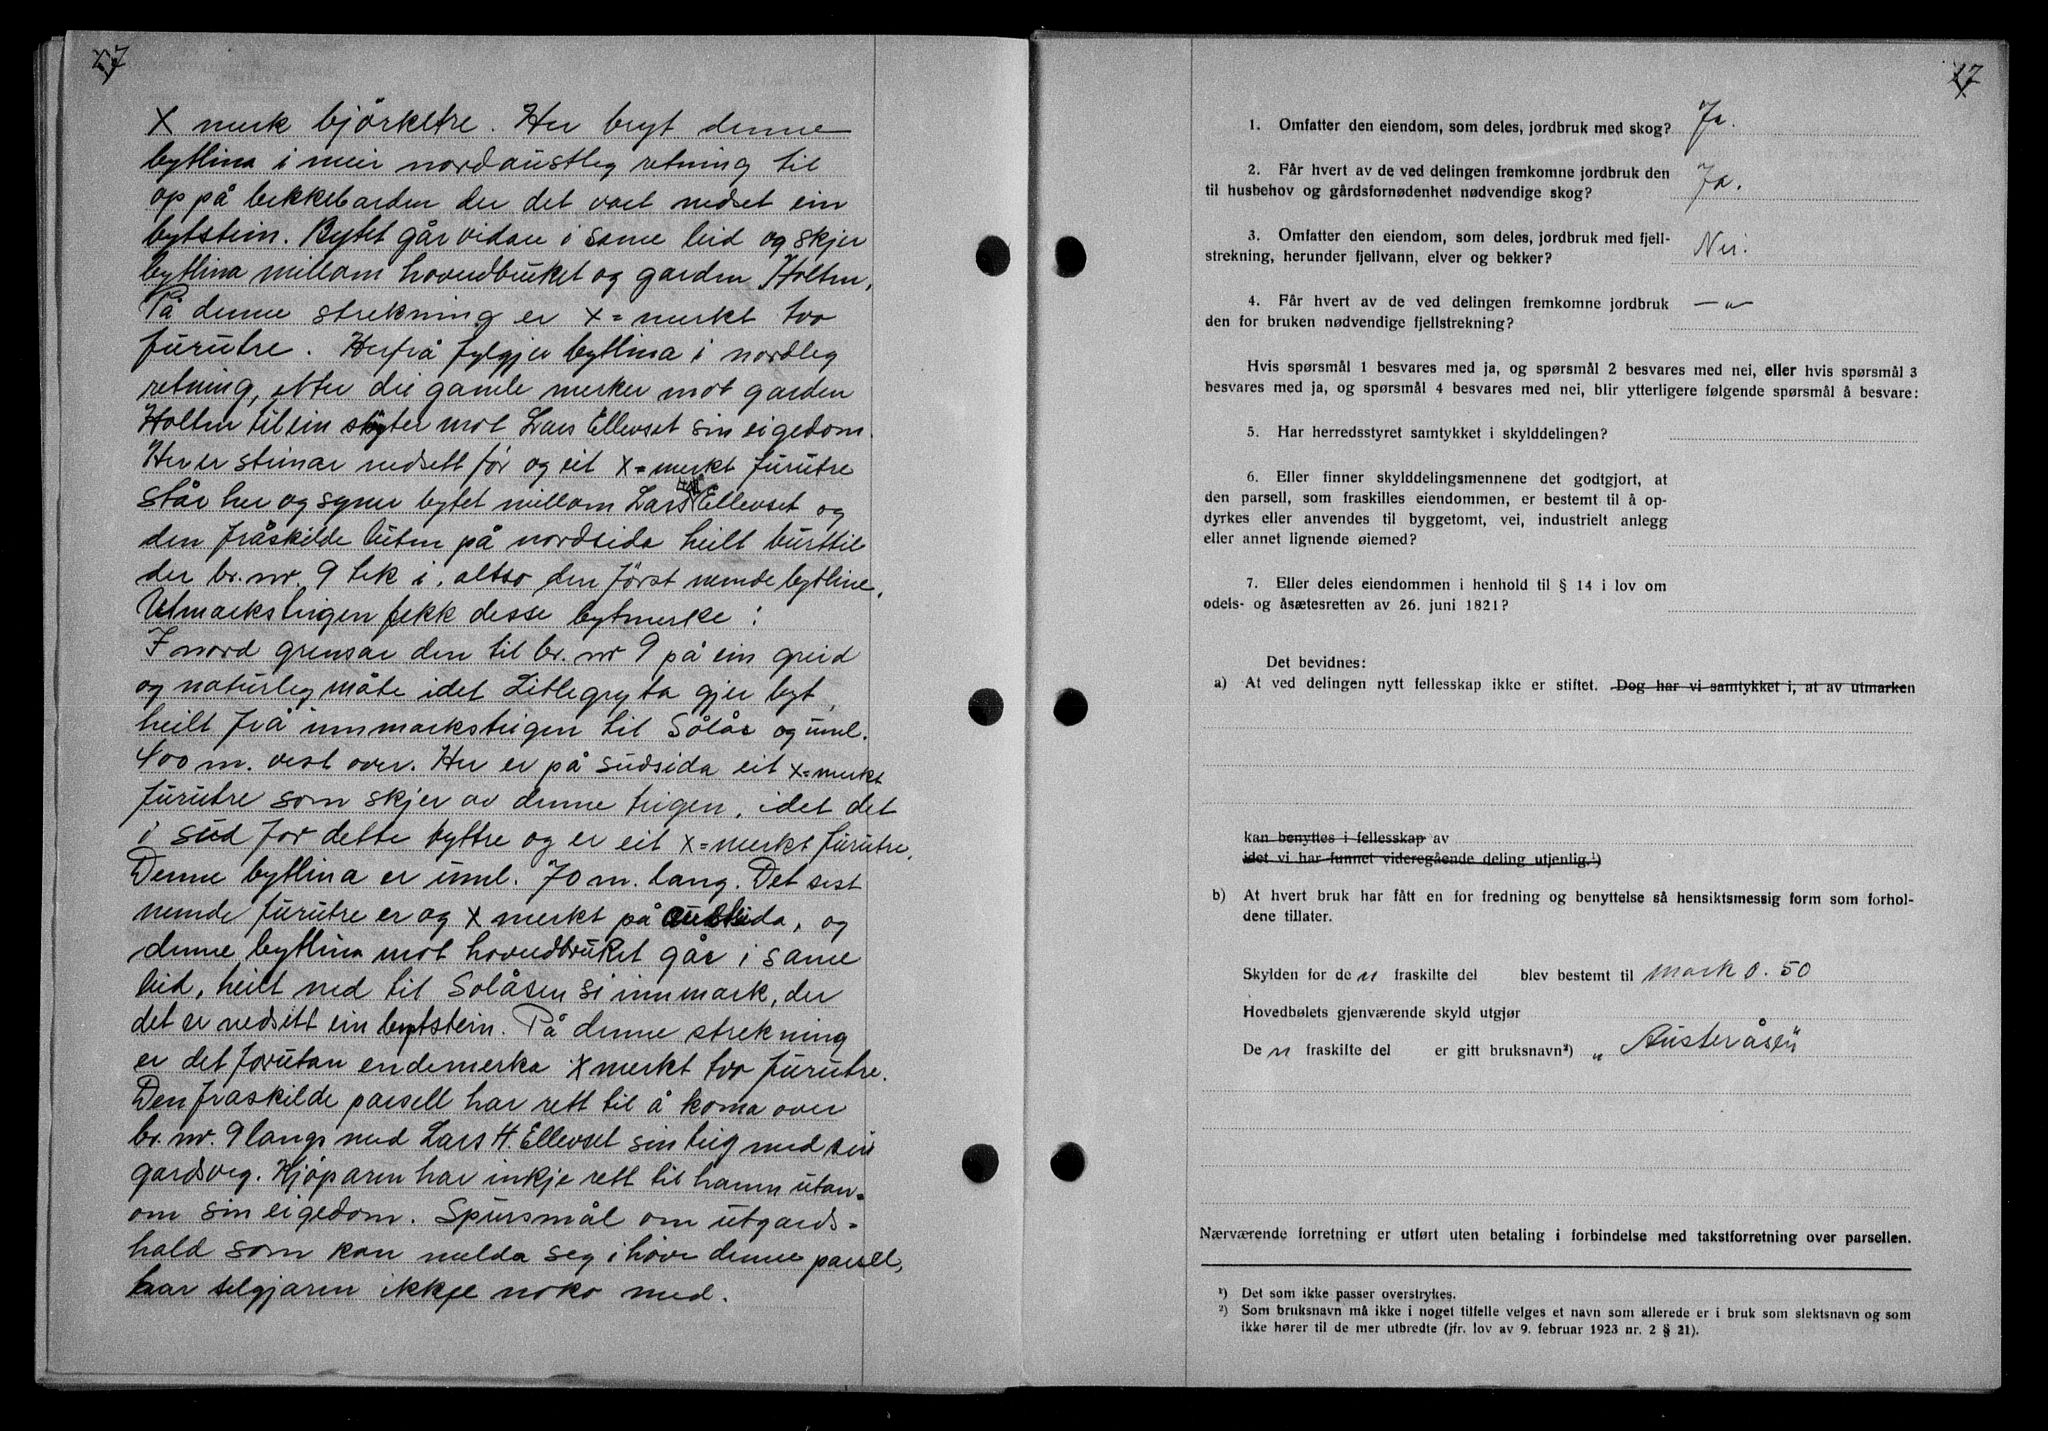 27
X merk björketre. Her bryt denne
bytlina i meir nordaustleg retning til
op på bekkebarden der det vart nedset ein
bytstein. Bytet går vidare i same leid og skjer
bytlina millom hovudbruket og garden Holten.
På denne strekning er X=merkt tvo
furutre. Herfrå fylgjer bytlina i nordleg
retning, etter dei gamle merker mot garden
Holten til ein skyter mot Lars Ellevset sin eigedom.
Her er steinar nedsett før og eit X=merkt furutre
står her og syner bytet millom Lars H. Ellevset og
den fråskilde luten på nordsida heilt burt til
der br. nr. 9 tek i, altso den først nemde bytline.
Utmarksteigen fekk desse bytmerke:
I nord grensar den til br. nr 9 på ein greid
og naturleg måte idet Litlegryta gjer byt,
heilt frå innmarksteigen til Sølås og uml.
400 m. vest over. Her er på sudsida eit X=merkt
furutre som skjer av denne teigen, idet det
i sud for dette byttre og er eit X=merkt furutre.
Denne bytlina er uml. 70 m. lang. Det sist
nemde furutre er og X merkt på austsida, og
denne bytlina mot hovudbruket går i same
leid, heilt ned til Solåsen si innmark, der
det er nedsett ein bytstein. På denne strekning
er det forutan endemerka X merkt tvo furutre.
Den fraskilde parsell har rett til å koma over
br. nr. 9 langs med Lars H. Ellevset sin teig med sin
gardsveg. Kjøparen har inkje rett til hamn utan=
om sin eigedom. Spursmål om utgards=
hald som kan melda seg i høve denne parsell,
har seljaren ikkje noko med.
17
1. Omfatter den eiendom, som deles, jordbruk med skog? Ja.
2. Får hvert av de ved delingen fremkomne jordbruk den
til husbehov og gårdsfornødenhet nødvendige skog? Ja.
3. Omfatter den eiendom, som deles, jordbruk med fjell-
strekning, herunder fjellvann, elver og bekker? Nei.
4. Får hvert av de ved delingen fremkomne jordbruk
den for bruken nødvendige fjellstrekning? —"—
Hvis spørsmål 1 besvares med ja, og spørsmål 2 besvares med nei, eller hvis spørsmål 3
besvares med ja, og spørsmål 4 besvares med nei, blir ytterligere følgende spørsmål å besvare:
5. Har herredsstyret samtykket i skylddelingen?
6. Eller finner skylddelingsmennene det godtgjort, at
den parsell, som fraskilles eiendommen, er bestemt til å op-
dyrkes eller anvendes til byggetomt, vei, industrielt anlegg
eller annet lignende øiemed?
7. Eller deles eiendommen i henhold til § 14 i lov om
odels- og åsætesretten av 26. juni 1821?
Det bevidnes:
a) At ved delingen nytt fellesskap ikke er stiftet. Dog har vi samtykket i, at av utmarken
kan benyttes i fellesskap av
idet vi har funnet videregående deling utjenlig.¹)
b) At hvert bruk har fått en for fredning og benyttelse så hensiktsmessig form som forhol-
dene tillater.
Skylden for den fraskilte del blev bestemt til mark 0.50
Hovedbølets gjenværende skyld utgjør
Den fraskilte del er gitt bruksnavn²) „Austeråsen"
Nærværende forretning er utført uten betaling i forbindelse med takstforretning over parsellen.
¹) Det som ikke passer overstrykes.
²) Som bruksnavn må ikke i noget tilfelle velges et navn som allerede er i bruk som slektsnavn og som
ikke hører til de mer utbredte (jfr. lov av 9. februar 1923 nr. 2 § 21).